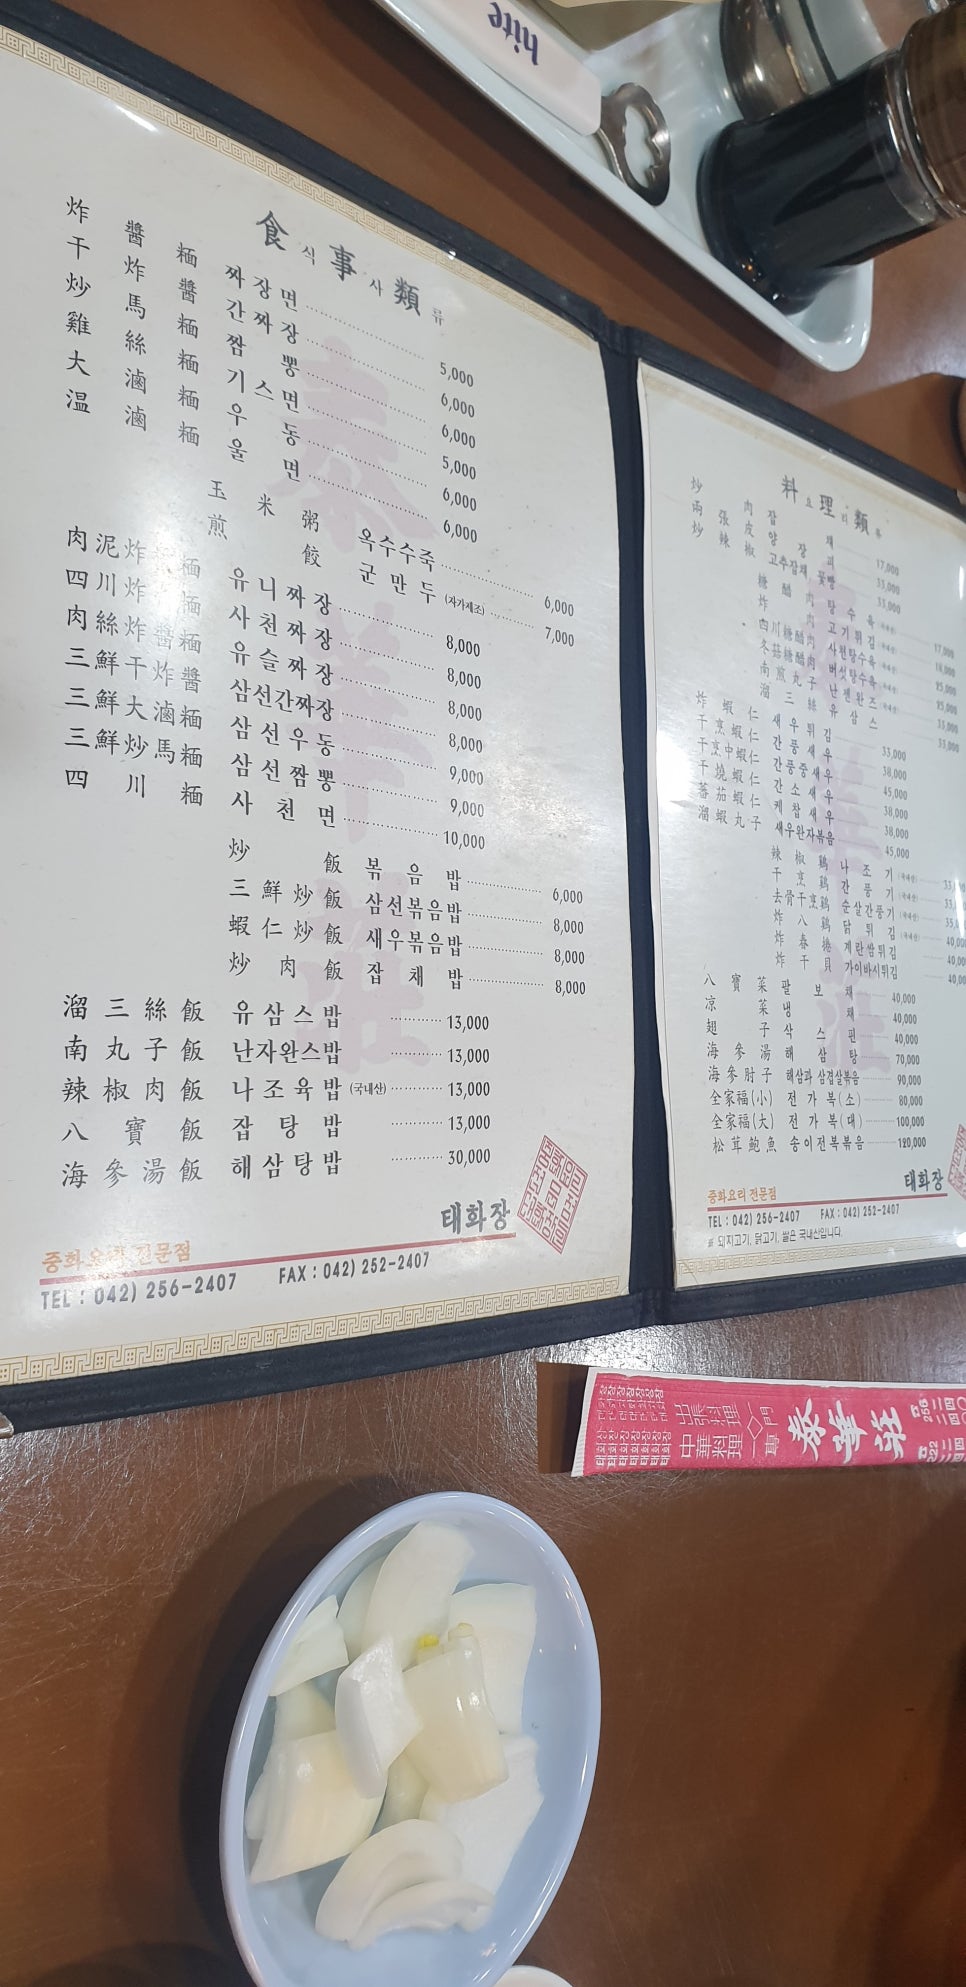 hite
食 식 事 사 類 류
炸 醬 麵 짜장면 5,000
干 炸 醬 麵 간짜장 6,000
炒 馬 麵 짬뽕 6,000
雞 絲 麵 기스면 5,000
大 滷 麵 우동 6,000
溫 滷 麵 울면 6,000
玉 米 粥 옥수수죽 6,000
煎 餃 군만두 (자가제조) 7,000
肉泥炸 麵 유니짜장 8,000
四川炸 麵 사천짜장 8,000
肉絲炸醬麵 유슬짜장 8,000
三鮮干炸醬 삼선간짜장 8,000
三鮮大滷麵 삼선우동 9,000
三鮮炒馬麵 삼선짬뽕 9,000
四川麵 사천면 10,000
炒飯 볶음밥 6,000
三鮮炒飯 삼선볶음밥 8,000
蝦仁炒飯 새우볶음밥 8,000
炒肉飯 잡채밥 8,000
溜三絲飯 유삼스밥 13,000
南丸子飯 난자완스밥 13,000
辣椒肉飯 나조육밥 (국내산) 13,000
八寶飯 잡탕밥 13,000
海參湯飯 해삼탕밥 30,000
태화장
중화요리 전문점
TEL : 042) 256-2407 FAX : 042) 252-2407
料 요 理 리 類 류
炒肉 잡채 17,000
兩張皮 양장피 33,000
炒辣椒 고추잡채 꽃빵 33,000
糖醋肉 탕수육 (국내산) 17,000
炸肉 고기튀김 (국내산) 16,000
四川糖醋肉 사천탕수육 (국내산) 25,000
冬菇糖醋肉 버섯탕수육 (국내산) 25,000
南煎丸子 난젠완즈 (국내산) 33,000
溜三絲 유삼스 33,000
炸蝦仁 새우튀김 33,000
干烹蝦仁 간풍새우 38,000
干烹中蝦仁 간풍중새우 45,000
干燒蝦仁 간소새우 38,000
蕃茄蝦仁 케찹새우 38,000
溜蝦丸子 새우완자볶음 45,000
辣椒鷄 나조기 (국내산)
干烹鷄 간풍기 (국내산)
去骨干烹鷄 순살간풍기 (국내산)
炸八鷄 닭튀김 (국내산) 40,000
炸春捲 계란쌈튀김 40,000
炸干貝 가이바시튀김
八寶菜 팔보채 40,000
凉菜 냉채 40,000
翅子 삭스핀 40,000
海參湯 해삼탕 70,000
海參肘子 해삼과 삼겹살볶음 90,000
全家福(小) 전가복(소) 80,000
全家福(大) 전가복(대) 100,000
松茸鮑魚 송이전복볶음 120,000
태화장
중화요리 전문점
TEL : 042) 256-2407 FAX : 042) 252-2407
# 돼지고기, 닭고기, 쌀은 국내산입니다.
出張料理 一門
中華料理 專
泰華莊